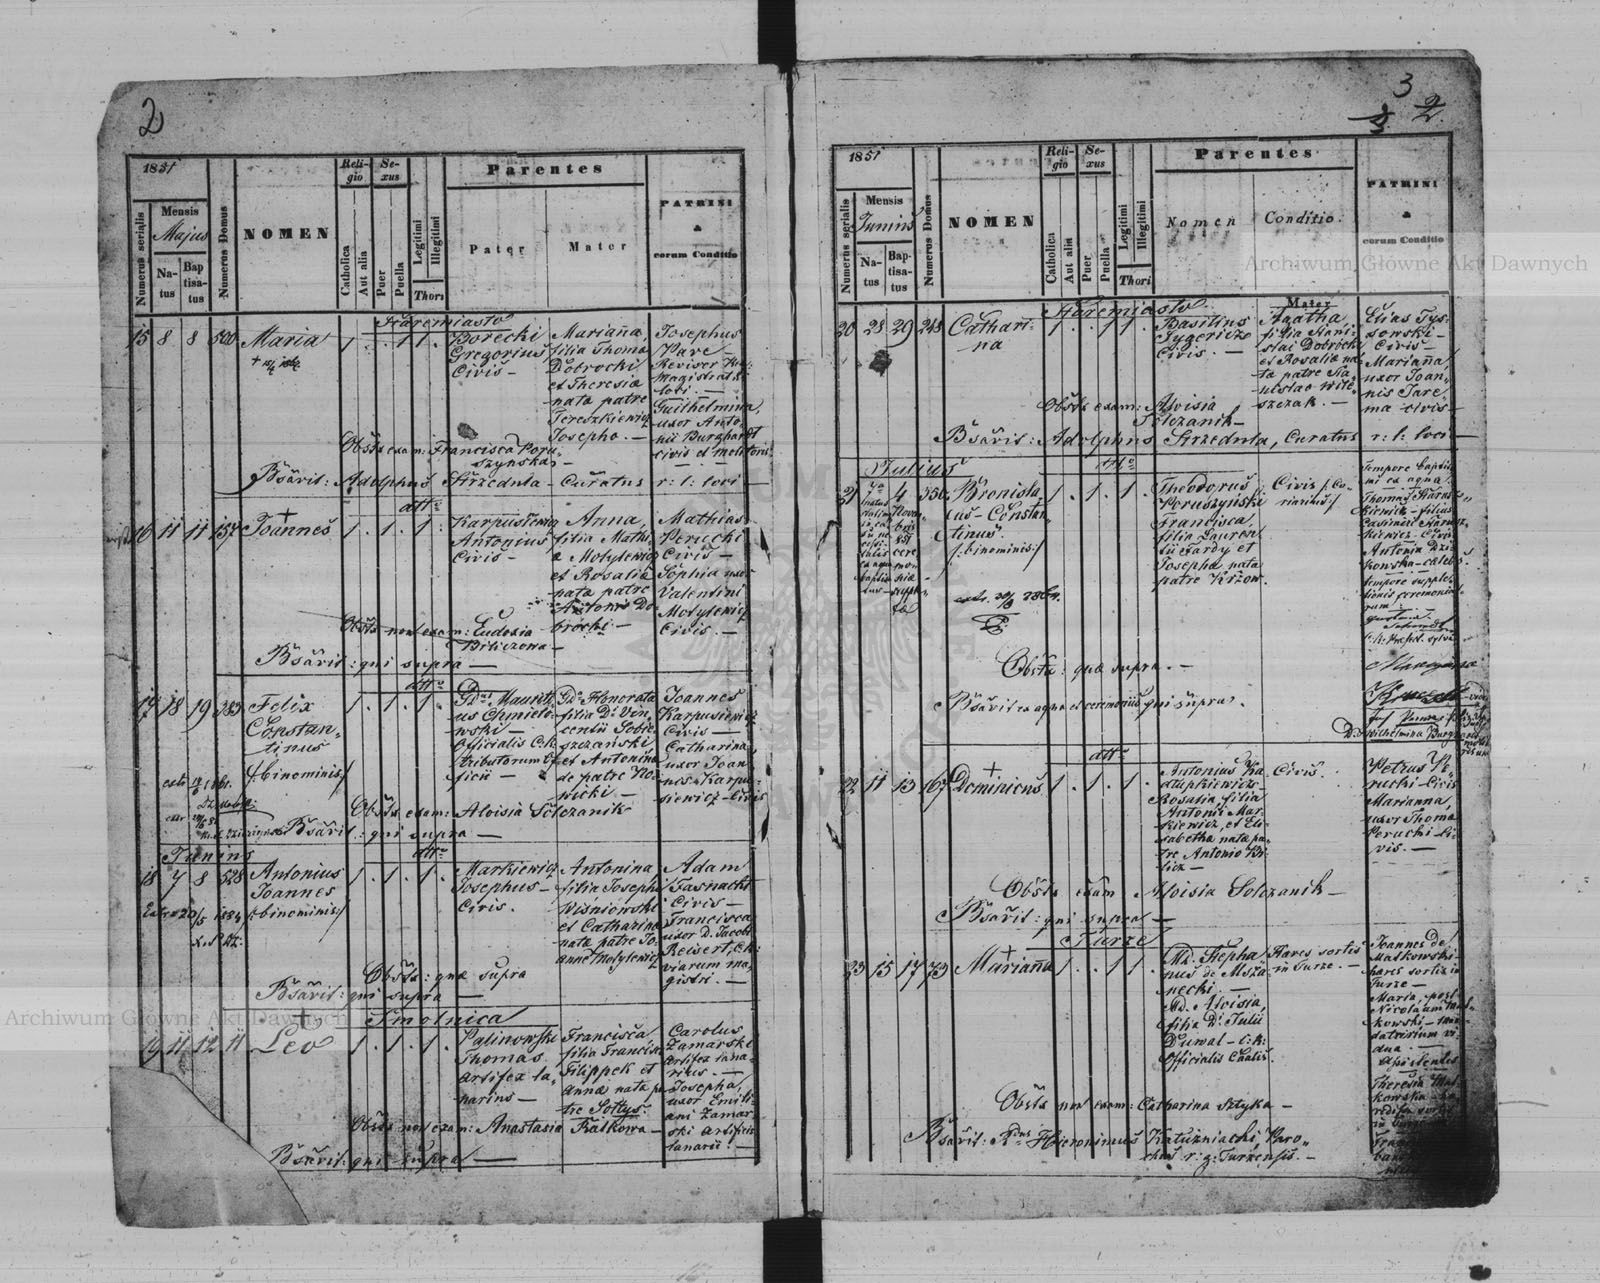 2
1851
Numerus serialis
Mensis
Majus
Natus
Baptisatus
Numerus Domus
NOMEN
Religio
Catholica
Aut alia
Sexus
Puer
Puella
Legitimi
Illegitimi
Thori
Parentes
Pater
Mater
PATRINI
&
eorum Conditio
Staremiasto
15 8 8 500 Maria 1 . . 1 1 .
Borecki
Gregorius
Civis –
Marianna,
filia Thoma
Dobrocki
et Theresiæ
nata patre
Tereszkiewicz
Josepho. –
Josephus
Pare –
Revisor
Magistrat.
loci. –
Guilhelmina,
uxor Anto-
nii Burghardt
civis et molitoris
Obstx exam: Francisca Poru-
szynska –
Bsavit: Adolphus Strzedula – Curatus r: l: loci –
dtto
16 11 11 157 Joannes 1 . 1 . 1 .
Karpusiewicz
Antonius
Civis –
Anna,
filia Mathi-
æ Motylewicz
et Rosaliæ
nata patre
Antonio Do-
brocki –
Mathias
Perucki
Civis –
Sophia uxor
Valentini
Motylewicz
Civis. –
Obstx non exam: Eudoxia
Biliczowa –
Bsavit: qui supra –
dtto
17 18 19 383 Felix
Constan-
tinus
/:binominis:/
1 . 1 . 1 .
Gds Mauriti-
us Chmielo-
wski –
Officialis C.k.
tributorum Of-
ficii –
Gda Honorata
filia Di Vin-
centii Sobie-
szczański,
et Antonina
de patre No-
wicki –
Joannes
Karpusiewicz
Civis –
Catharina
uxor Joan-
nis Karpu-
siewicz – Civis
Obstx exam: Aloisia Solczanik
Bsavit: qui supra –
Junius
dtto
18 7 8 528 Antonius
Joannes
/:binominis:/
1 . 1 . 1 .
Extr 20/5 1884
Markiewicz
Josephus –
Civis.
Antonina
filia Josephi
Wiśniowski
et Catharina
nata patre Jo-
anne Motylewicz
Adam
Tasnacki
Civis –
Francisca
uxor D. Jacobi
Reisert, C.k:
viarum ma-
gistri. –
Obstx: quæ supra
Bsavit: qui supra –
Smolnica
19 11 12 11 Leo 1 . 1 . 1 .
Palinowski
Thomas
Artifex la-
narius –
Francisca
filia Francisci
Filippek et
Anna nata pa-
tre Sottys.
Carolus
Zamarski
Artifex lana-
rius. –
Josepha,
uxor Emili-
ani Zamar-
ski Artificis
lanarii: –
Obstx non exam: Anastasia Bialkowa –
Bsavit: qui supra –
3
2
1851
Numerus serialis
Mensis
Junius
Natus
Baptisatus
Numerus Domus
NOMEN
Religio
Catholica
Aut alia
Sexus
Puer
Puella
Legitimi
Illegitimi
Thori
Parentes
Nomen
Conditio
PATRINI
&
eorum Conditio
Staremiasto
20 28 29 248 Cathari-
na
1 . . 1 1 .
Basilius
Sygericz
Civis. –
Mater
Agatha
filia Stani-
slai Dobrocki
et Rosaliæ na-
ta patre Sta-
nislao Wite-
szczak. –
Elias Tys-
sowski –
Civis –
Marianna,
uxor Joan-
nis Jare-
ma – civis –
Obstx exam: Aloisia
Solczanik –
Bsavit: Adolphus Strzedula, Curatus r: l: loci –
Julius
dtto
21 4 550 Bronisla-
us – Constan-
tinus.
/:binominis:/
1 . 1 . 1 .
Theodorus
Poruszyński
Francisca,
filia Lauren-
tii Fardy et
Josepha nata
patre Krzow.
Civis /: Co-
riarius:/
Tempore baptis-
mi ex aqua:
Thomas Karus-
kiewicz – filius
Casimiri
Civis
Antonia Dzi-
kowska – cælebs
tempore supple-
tionis ceremonia-
rum
Obstx: quæ supra. –
Bsavit ex aqua et ceremoniis qui supra.
Dna Wilhelmina
dtto
22 11 13 167 Dominicus 1 . 1 . 1 .
Antonius
Rosalia, filia
Antonii Mar-
kiewicz, et Eli-
sabetha nata pa-
tre Antonio
Civis.
Petrus Pe-
rucki – Civis
Marianna,
uxor Thoma
Perucki – Ci-
vis. –
Obstx exam Aloisia Solczanik –
Bsavit: qui supra –
Turze
23 15 17 73 Marianna 1 . . 1 1 .
Md. Stepha-
nus de Msza-
necki. –
Md. Aloisia,
filia Di Julii
Duwal – c: k:
Officialis
Hæres sortis
in Turze. –
Joannes de
Matkowski –
hæres sortis in
Turze –
Maria, post
Nicolaum Mat-
kowski – man-
datarium vi-
dua. –
Assistentes
Theresia Mat-
kowska
Obstx non exam: Catharina Sztyka –
Bsavit: Rdus Hieronimus Katuzniacki, Paro-
chus r: g: Turzensis. –
Archiwum Główne Akt Dawnych
Archiwum Główne Akt Dawnych